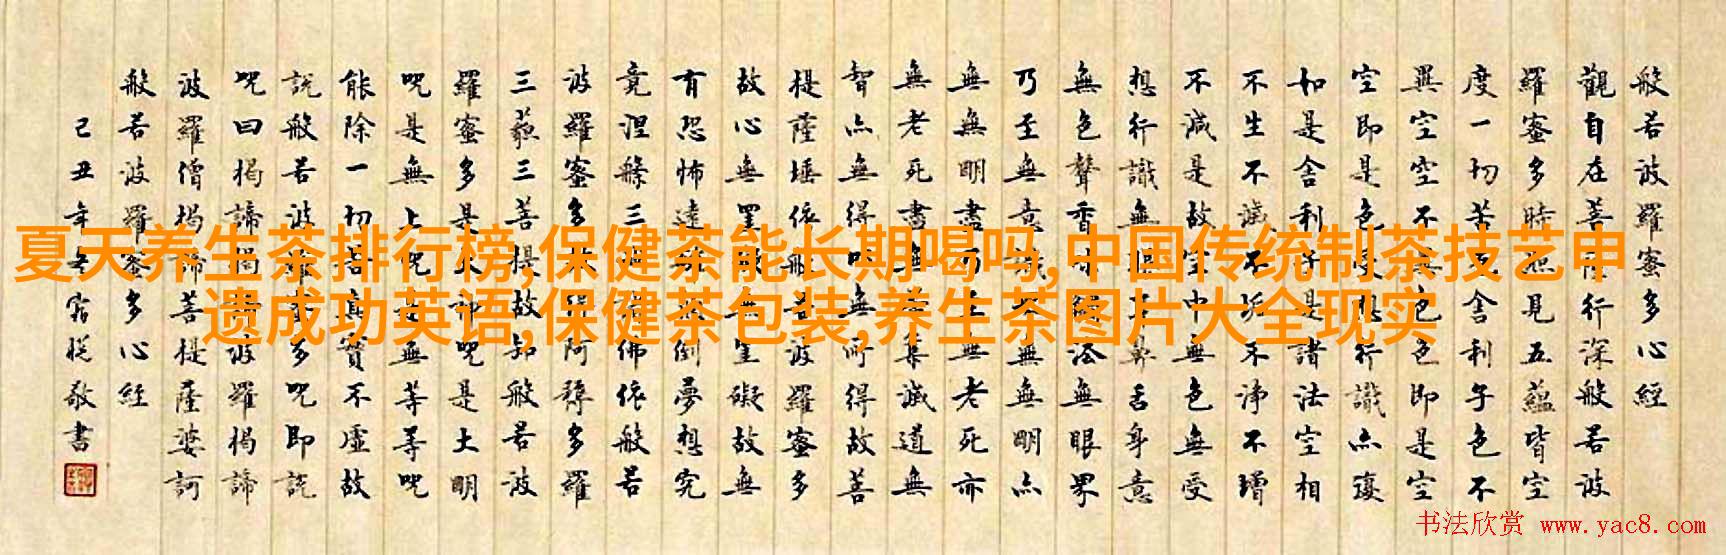 般若波羅蜜多心經
觀自在菩薩行深般若波
羅蜜多時照見五蘊皆空
度一切苦厄舍利子色不
異空空不異色色即是空
空即是色受想行識亦復
如是舍利子是諸法空相
不生不滅不垢不淨不增
不減是故空中無色無受
想行識無眼耳鼻舌身意
無色聲香味觸法無眼界
乃至無意識界無無明亦
無無明盡乃至無老死亦
無老死盡無苦集滅道無
智亦無得以無所得故菩
提薩埵依般若波羅蜜多
故心無罣礙無罣礙故無
有恐怖遠離顛倒夢想究
竟涅槃三世諸佛依般若
波羅蜜多故得阿耨多羅
三藐三菩提故知般若波
羅蜜多是大神咒是大明
咒是無上咒是無等等咒
能除一切苦真實不虛故
說般若波羅蜜多咒即說
咒曰揭諦揭諦波羅揭諦
波羅僧揭諦菩提薩婆訶
般若波羅蜜多心經
己丑年敬書
夏天养生茶排行榜,保健茶能长期喝吗,中国传统制茶技艺申
遗成功英语,保健茶包装,养生茶图片大全现实
书法欣赏 www.yac8.com